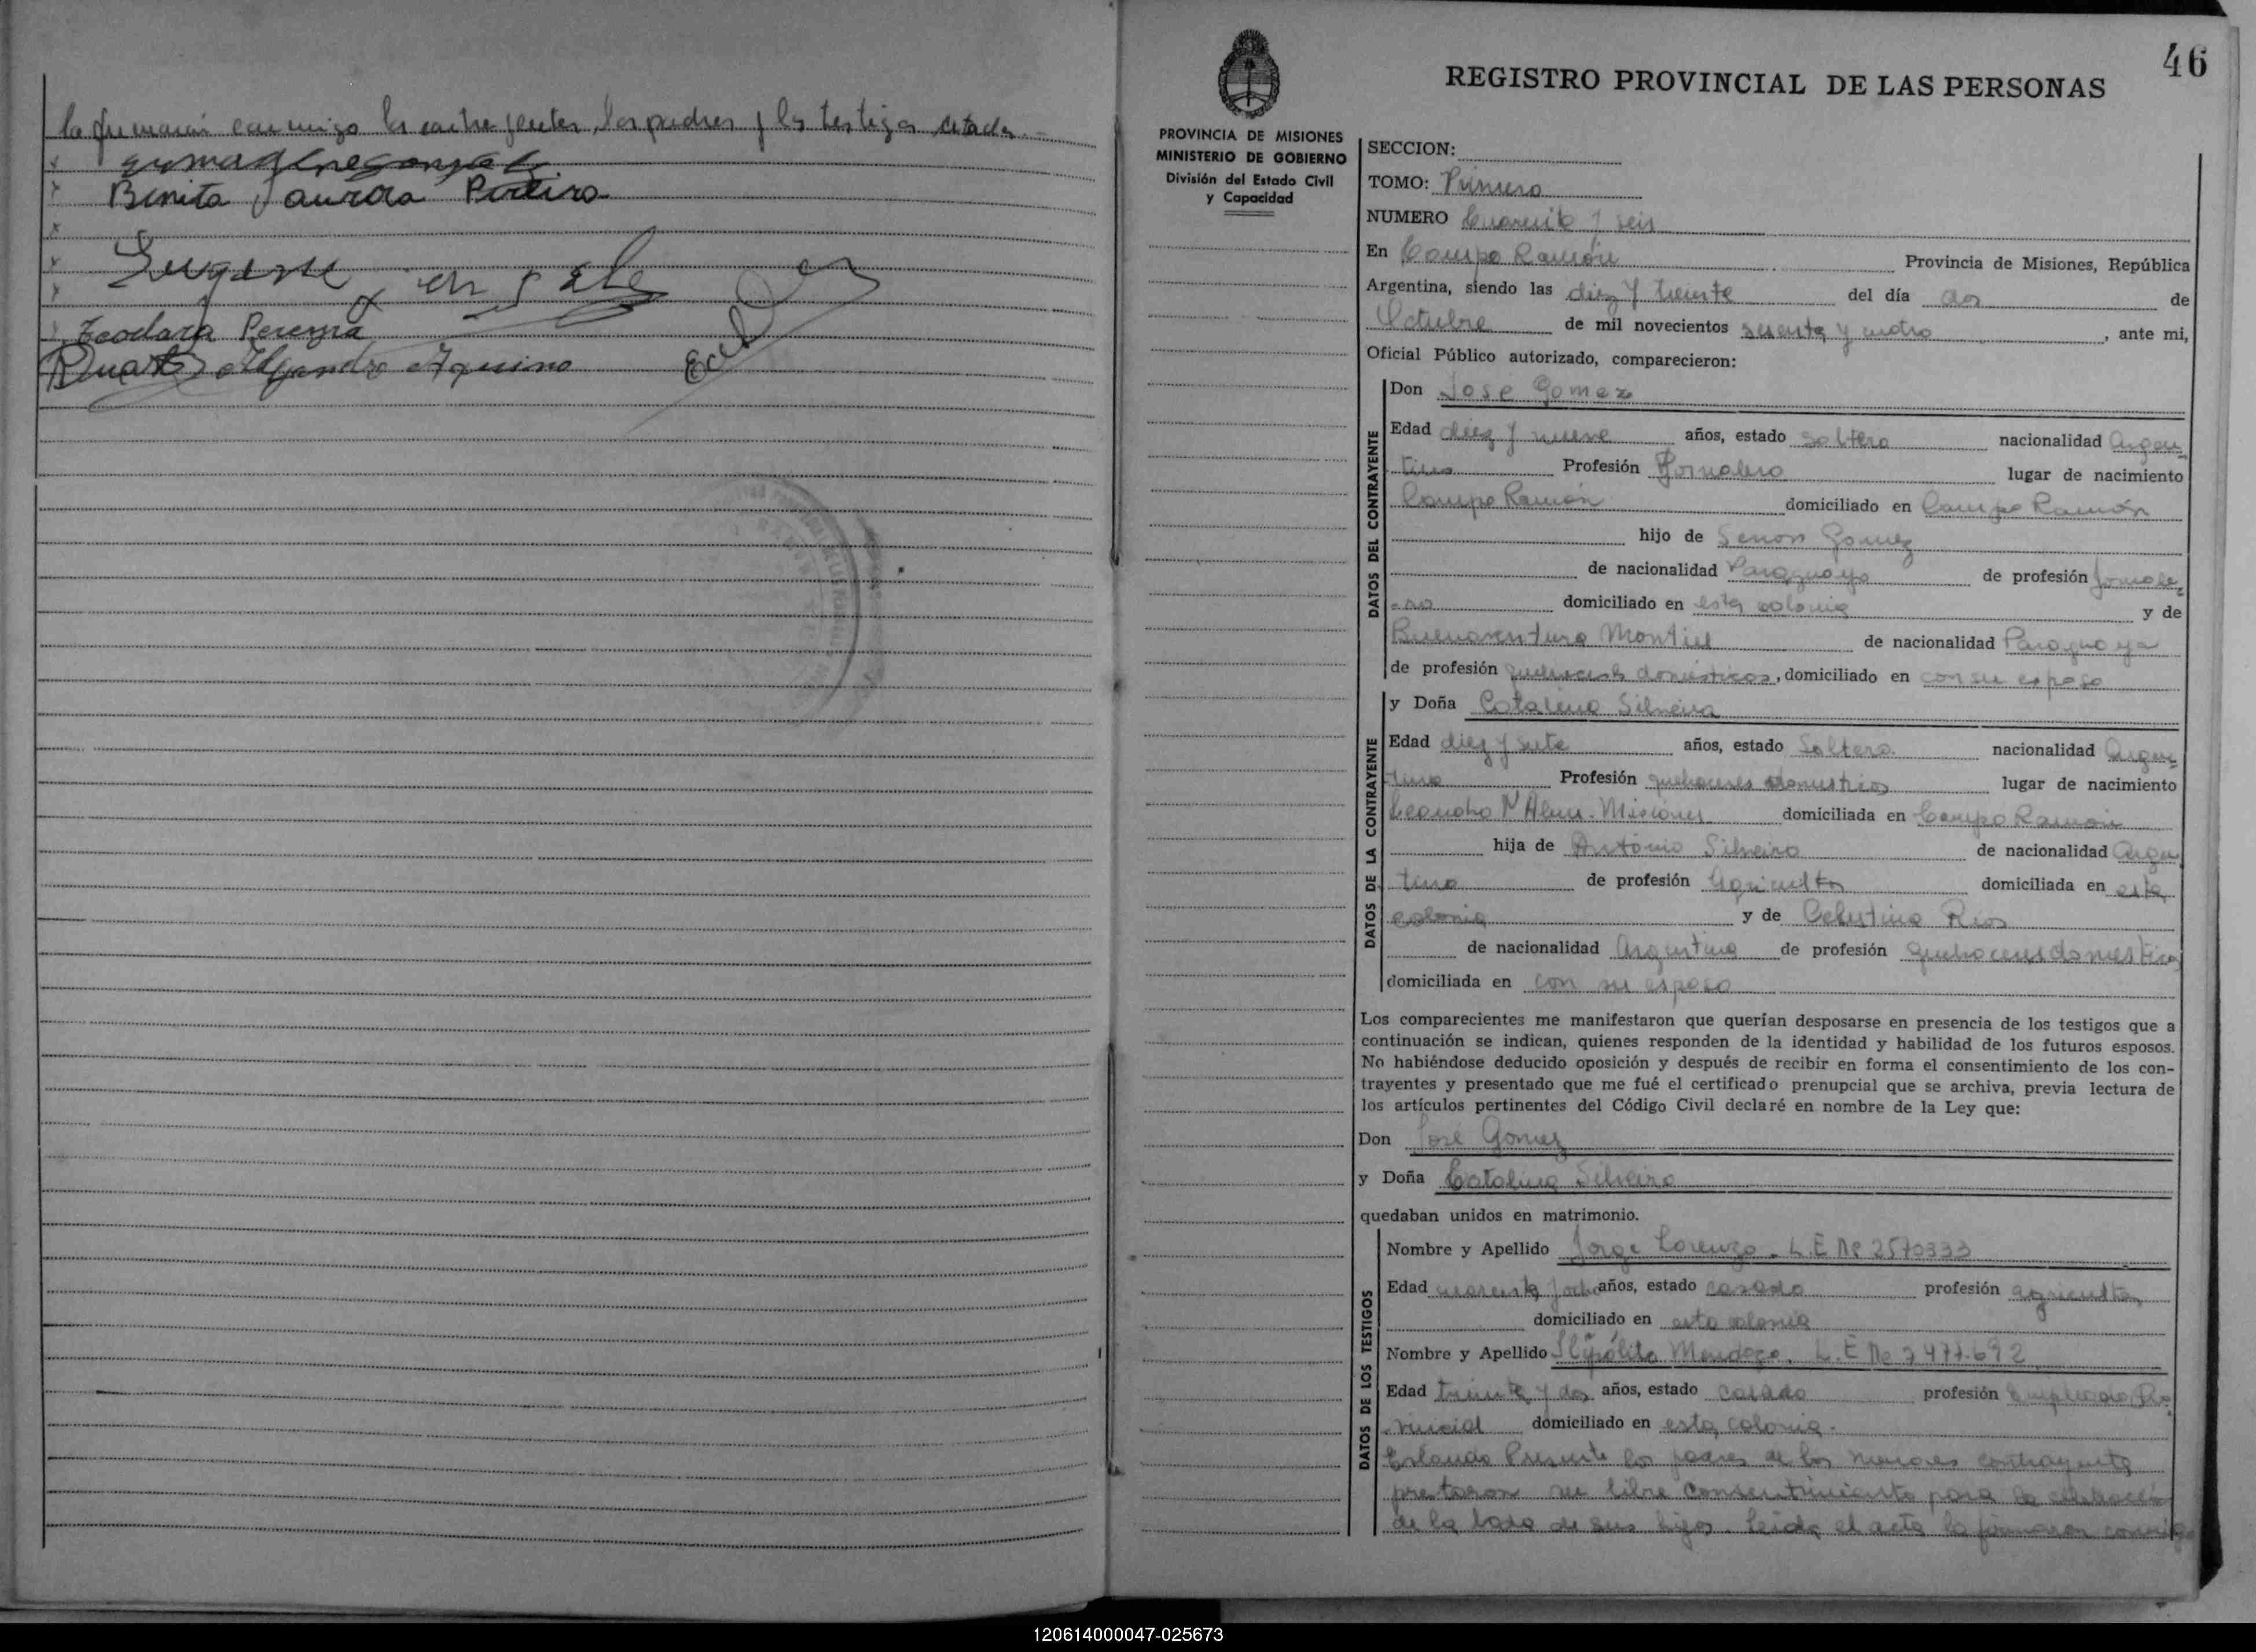 la firmaron conmigo los contrayentes, los padres y los testigos citados.-
Benita Aurora Pereira
Teodora Pereyra
Alejandro Aquino
46
REGISTRO PROVINCIAL DE LAS PERSONAS
PROVINCIA DE MISIONES
MINISTERIO DE GOBIERNO
División del Estado Civil
y Capacidad
SECCION:
TOMO: Primero
NUMERO Cuarenta y seis
En Campo Ramón Provincia de Misiones, República
Argentina, siendo las diez y treinta del día dos de
Octubre de mil novecientos sesenta y cuatro, ante mi,
Oficial Público autorizado, comparecieron:
DATOS DEL CONTRAYENTE
Don Jose Gomez
Edad diez y nueve años, estado soltero nacionalidad Argen-
tino Profesión Jornalero lugar de nacimiento
Campo Ramón domiciliado en Campo Ramón
hijo de Senon Gomez
de nacionalidad Paraguayo de profesión Jornale-
-ro domiciliado en esta colonia y de
Buenaventura Montiel de nacionalidad Paraguaya
de profesión quehaceres domésticos, domiciliado en con su esposo
DATOS DE LA CONTRAYENTE
y Doña Catalina Silveira
Edad diez y siete años, estado Soltera nacionalidad Argen-
tina Profesión quehaceres domesticos lugar de nacimiento
Leandro N Alem. Misiones domiciliada en Campo Ramón
hija de Antonio Silveira de nacionalidad Argen
tino de profesión Agricultor domiciliada en esta
colonia y de Celestina Rios
de nacionalidad Argentina de profesión quehaceres domesticos
domiciliada en con su esposo
Los comparecientes me manifestaron que querían desposarse en presencia de los testigos que a
continuación se indican, quienes responden de la identidad y habilidad de los futuros esposos.
No habiéndose deducido oposición y después de recibir en forma el consentimiento de los con-
trayentes y presentado que me fué el certificado prenupcial que se archiva, previa lectura de
los artículos pertinentes del Código Civil declaré en nombre de la Ley que:
Don José Gomez
y Doña Catalina Silveira
quedaban unidos en matrimonio.
DATOS DE LOS TESTIGOS
Nombre y Apellido Jorge Lorenzo. L.E Nº 2570333
Edad cuarenta y ocho años, estado casado profesión agricultor
domiciliado en esta colonia
Nombre y Apellido Hipólito Mendoza. L.E Nº 7.477.692
Edad treinta y dos años, estado casado profesión Empleado Pro
vincial domiciliado en esta colonia.
Estando Presente los padres de los menores contrayentes
prestaron su libre consentimiento para la celebración
de la boda de sus hijos. Leida el acta la firmaron conmigo
120614000047-025673